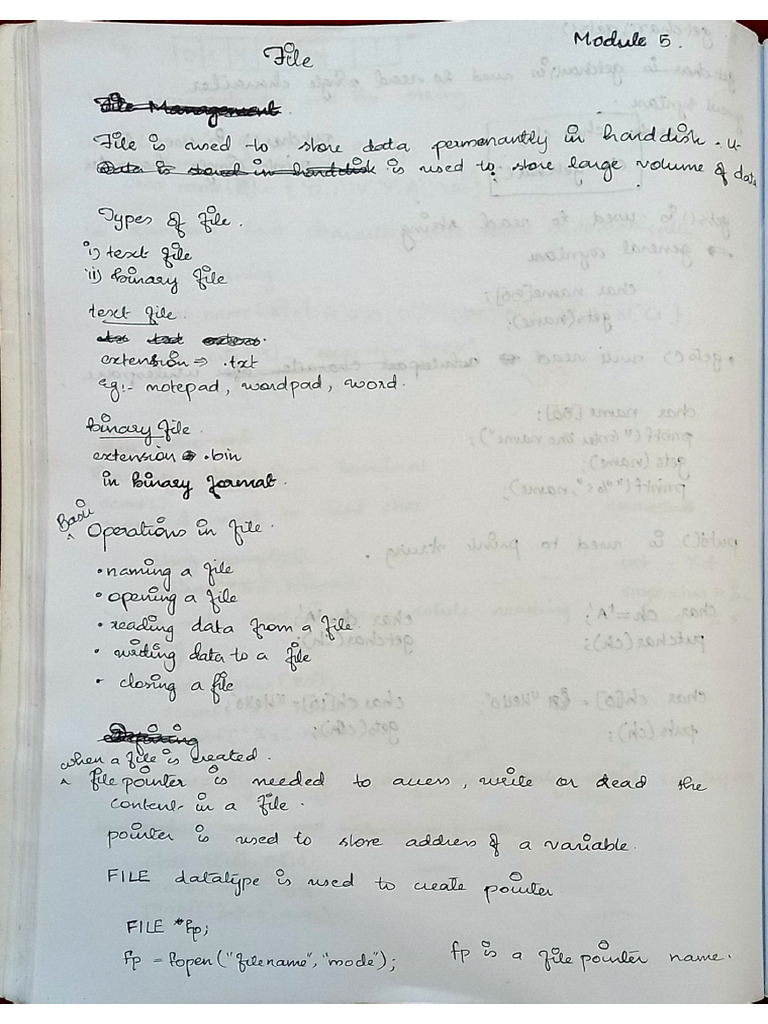 Module 5.
File
File Management.
File is used to store data permanantly in harddisk. It
Data is stored in harddisk is used to store large volume of data
Types of file.
i) text file
ii) binary file
text file.
extension ⇒ .txt
eg:- notepad, wordpad, word.
binary file.
extension → .bin
in binary format.
Basic
^ Operations in file.
• naming a file
• opening a file
• reading data from a file
• writing data to a file
• closing a file
Defining
when a file is created.
^ file pointer is needed to access, write or read the
content in a file.
pointer is used to store address of a variable.
FILE datatype is used to create pointer
FILE *fp;
fp = fopen("filename", "mode"); fp is a file pointer name.